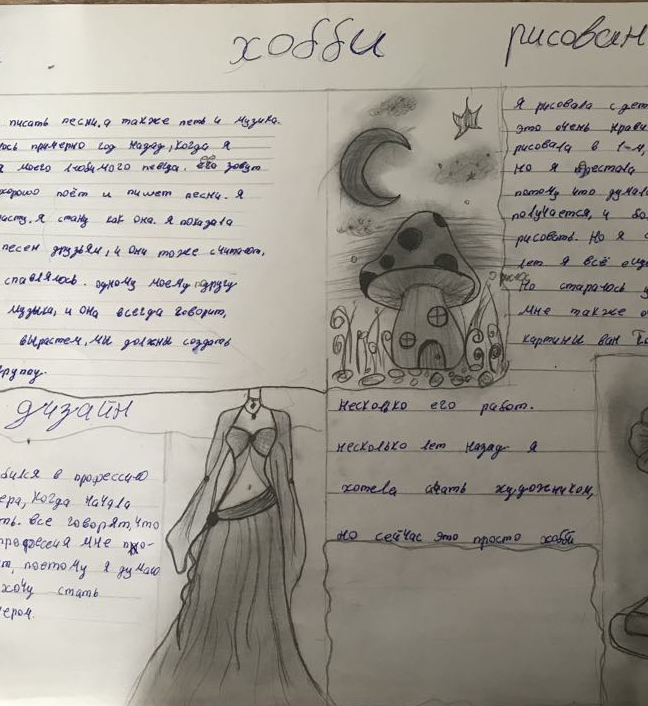 хобби
рисован
писать песни, а также петь и музика.
ось примерно год назад, когда я
моего любимого певца. его зовут
хорошо поёт и пишет песни. я
расту, я стану как она. я показала
песен друзьям, и они тоже считают,
справлялось. одному моему другу
музыка, и она всегда говорит,
вырастем, мы должны создать
группу.
дизайн
бился в профессию
ера, когда начала
ть. все говорят, что
профессия мне по-
т, поэтому я думаю
хочу стать
нером.
Я рисовала с дет
это очень нрави
рисовала в 1-м,
но я перестала
потому что думала
получается, и бо
рисовать. Но я с
лет я всё ещё
но стараюсь у
мне также о
картины ван Го
несколько его работ.
несколько лет назад я
хотела стать художником,
но сейчас это просто хобби